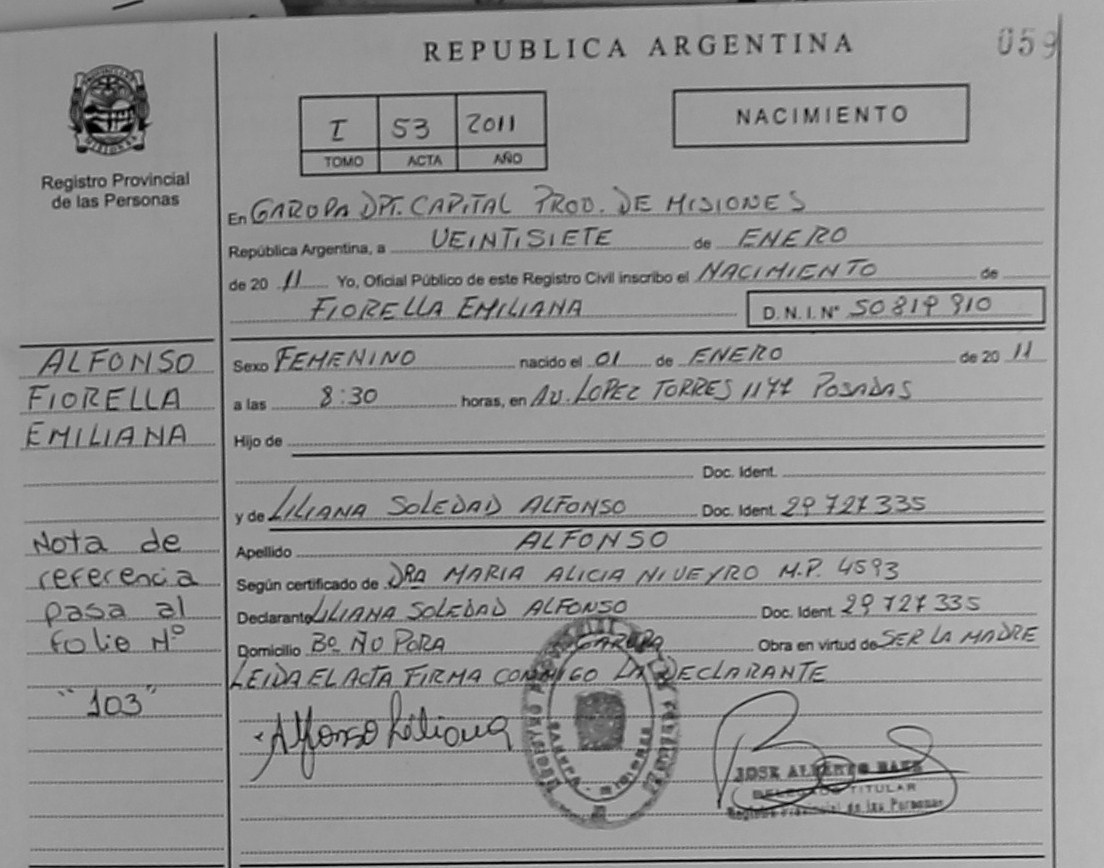 REPUBLICA ARGENTINA
059
I 53 2011
TOMO ACTA AÑO
NACIMIENTO
MISIONES
Registro Provincial
de las Personas
En GARUPA DPT. CAPITAL PROV. DE MISIONES
República Argentina, a VEINTISIETE de ENERO
de 20 11 Yo, Oficial Público de este Registro Civil inscribo el NACIMIENTO de
FIORELLA EMILIANA D.N.I. Nº 50 819 910
ALFONSO
FIORELLA
EMILIANA
Nota de
referencia
pasa al
folio Nº
"103"
Sexo FEMENINO nacido el 01 de ENERO de 20 11
a las 8:30 horas, en AV. LOPEZ TORRES 1177 POSADAS
Hijo de
Doc. Ident.
y de LILIANA SOLEDAD ALFONSO Doc. Ident. 29 727 335
Apellido ALFONSO
Según certificado de DRA MARIA ALICIA NIVEYRO M.P. 4593
Declarante LILIANA SOLEDAD ALFONSO Doc. Ident. 29 727 335
Domicilio Bº ÑU PORA GARUPA Obra en virtud de SER LA MADRE
LEIDA EL ACTA FIRMA CONMIGO LA DECLARANTE
Alfonso Liliana
GARUPA - MISIONES
JOSE ALBERTO BAEZ
DELEGADO TITULAR
Registro Provincial de las Personas